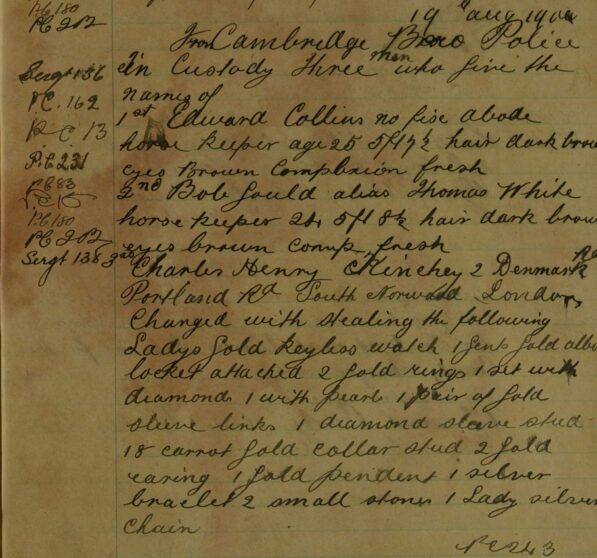 PC 180
PC 202
Sergt 136
PC. 162
PC 13
P.C 231
PC 83
PC 180
PC 202
Sergt 138
19th Aug
From Cambridge Boro Police
In Custody three men who give the
names of
1st Edward Collins no fixe abode
horse keeper age 25 5ft 7½ hair dark brow
eyes Brown Complexion fresh
2nd Bob Gould alias Thomas White
horse keeper 24 5ft 8½ hair dark brow
eyes brown comp fresh
3rd
Charles Henry Kinchey 2 Denmark Rd
Portland Rd South Norwood London
Charged with stealing the following
Ladys Gold keyless watch 1 Gents Gold alb
locket attached 2 Gold rings 1 set with
diamonds 1 with pearls 1 pair of Gold
sleeve links 1 diamond sleeve stud
18 carrot Gold collar stud 2 Gold
earing 1 Gold pendent 1 silver
bracelet 2 small stones 1 Lady silver
chain
PC 243